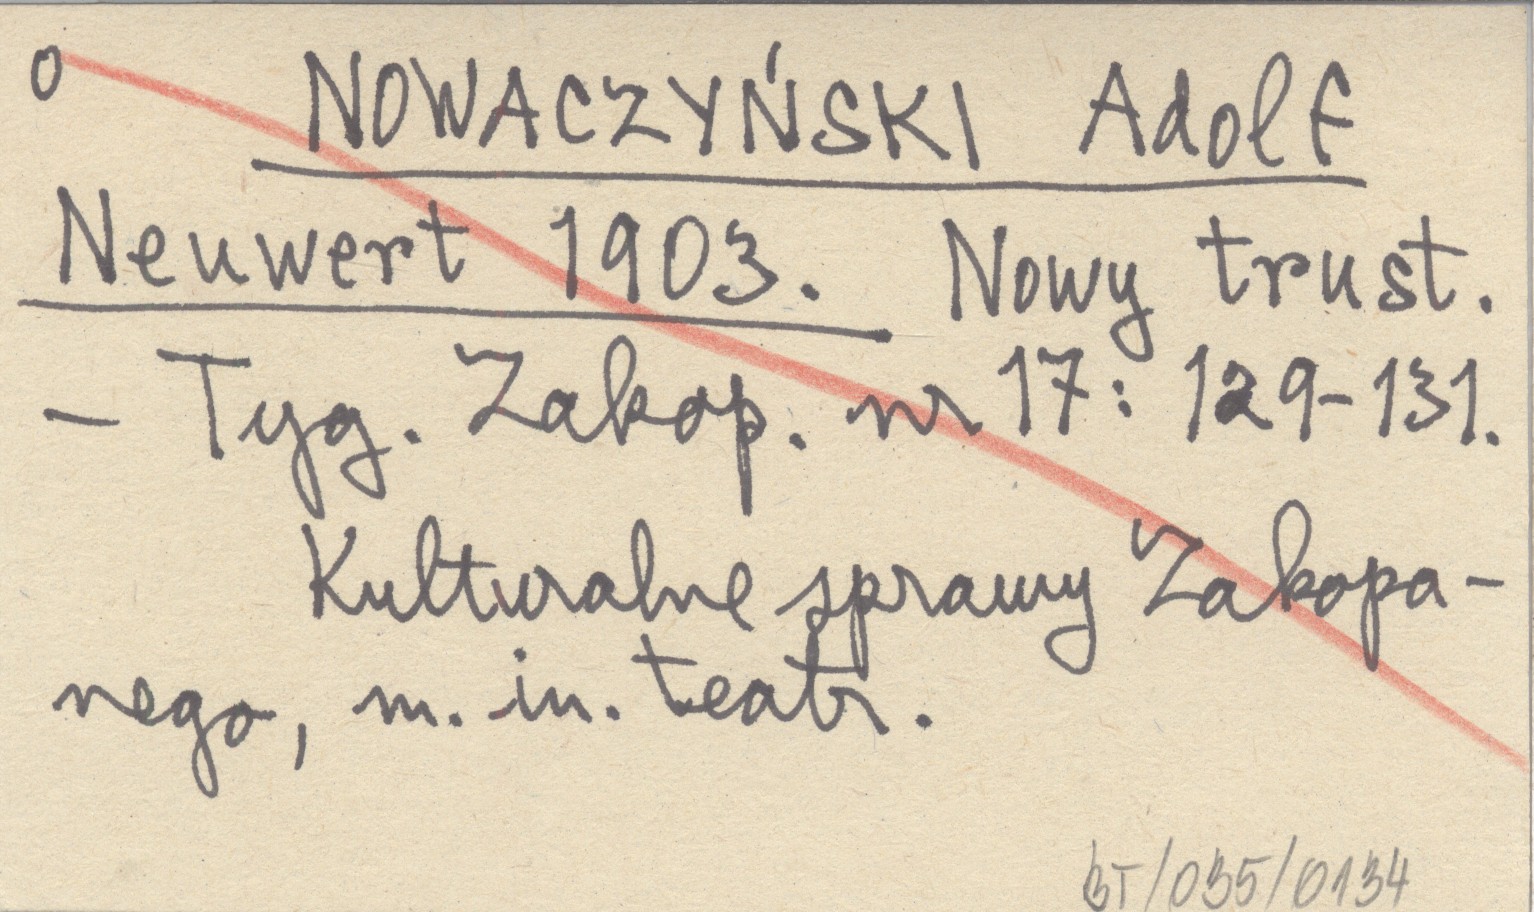 o NOWACZYŃSKI Adolf
Neuwert 1903. Nowy trust.
- Tyg. Zakop. nr 17: 129-131.
Kulturalne sprawy Zakopa-
nego, m. in. teatr.
BT/035/0134